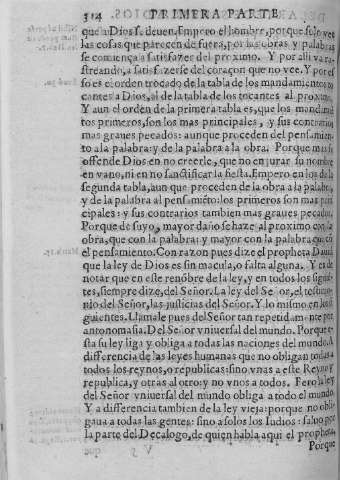 314 PRIMERA PARTE
que a Dios se deuen. Empero el hombre, porque solo vee
las cosas que parecen de fuera, por las obras y palabras
se comiença a satisfazer del proximo. Y por alli va ra-
streando, a satisfazerse del coraçon que no vee. Y por es
so es el orden trocado de la tabla de los mandamientos to
cantes a Dios, al de la tabla de los tocantes al proximo.
Y aun el orden de la primera tabla es, que los mandamiē
tos primeros, son los mas principales, y sus contrarios
mas graues pecados: aunque proceden del pensamien-
to a la palabra: y de la palabra a la obra. Porque mas se
offende Dios en no creerle, que no en jurar su nombre
en vano, ni en no sanctificar la fiesta. Empero en los de la
segunda tabla, aun que proceden de la obra a la palabra,
y de la palabra al pensamiēto: los primeros son mas prin
cipales: y sus contrarios tambien mas graues pecados.
Porque de suyo, mayor daño se haze al proximo con la
obra, que con la palabra: y mayor con la palabra que cō
el pensamiento. Con razon pues dize el propheta Dauid
que la ley de Dios es sin macula, o falta alguna. Y es de
notar que en este renōbre de la ley, y en todos los siguiē
tes, siempre dize, del Señor. La ley del Señor, el testimo-
nio del Señor, las justicias del Señor. Y lo mismo en los si
guientes. Llamale pues del Señor tan repetidamente por
antonomasia. Del Señor vniuersal del mundo. Porque e-
sta su ley liga y obliga a todas las naciones del mundo. A
differencia de las leyes humanas que no obligan todas a
todos los reynos, o republicas: sino vnas a este Reyno y
republica, y otras al otro: y no vnos a todos. Pero la ley
del Señor vniuersal del mundo obliga a todo el mundo.
Y a differencia tambien de la ley vieja: porque no obli-
gaua a todas las gentes: sino a solos los Iudios: saluo por
la parte del Decalogo, de quien habla aqui el propheta.
Porque